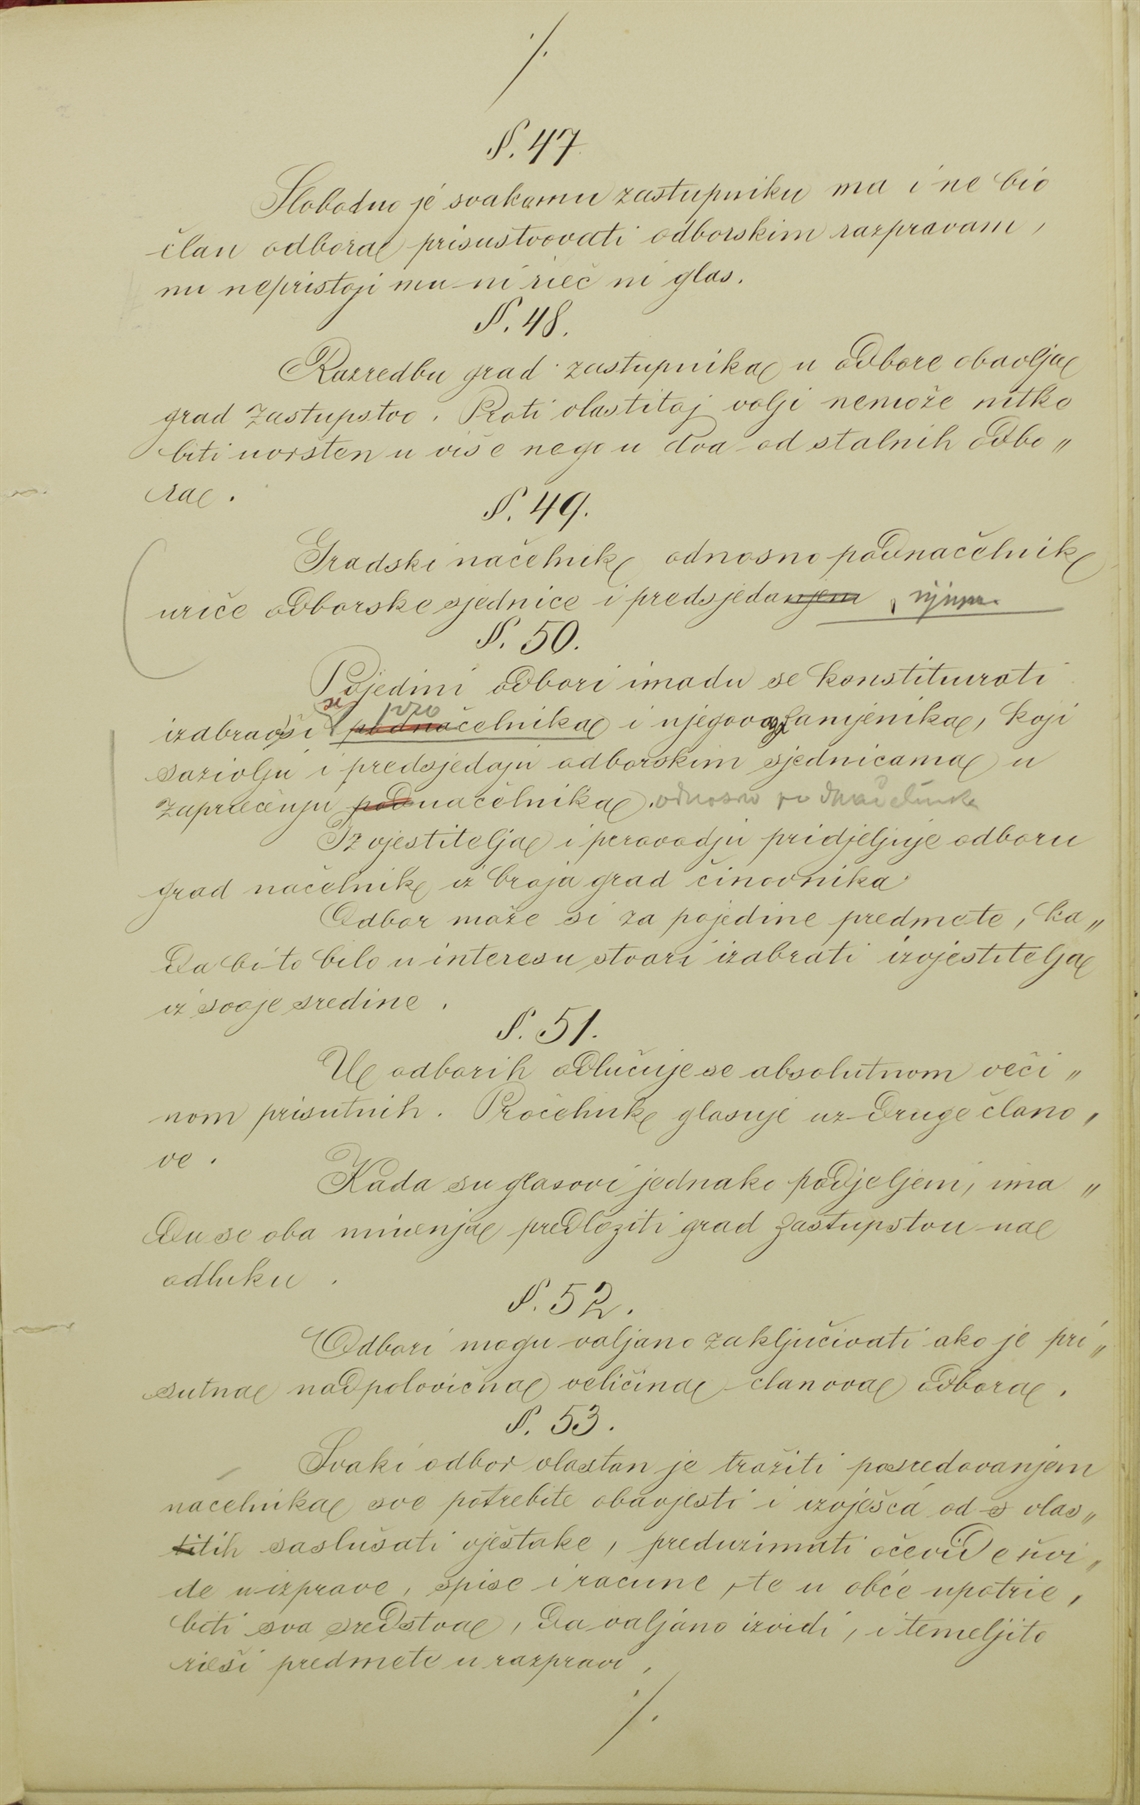 ·/.
§. 47
Slobodno je svakomu zastupniku ma i ne bio
član odbora prisustvovati odborskim razpravam,
nu nepristoji mu ni rieč ni glas.
§. 48.
Razredbu grad. zastupnika u odbore obavlja
grad zastupstvo. Proti vlastitoj volji nemože nitko
biti uvršten u više nego u dva od stalnih odbo„
ra.
§. 49.
Gradski načelnik odnosno podnačelnik
uriče odborske sjednice i predsjeda njem , njima.
§. 50.
Pojedini odbori imadu se konstituirati
izabravši si pro podnačelnika i njegova zamjenika, koji
sazivlju i predsjedaju odborskim sjednicama u
zapriečenju podnačelnika. odnosno podnačelnika
Izvjestitelja i perovodju pridjeljuje odboru
grad načelnik iz broja grad činovnika
Odbor može si za pojedine predmete, ka„
da bi to bilo u interesu stvari izabrati izvjestitelja
iz svoje sredine.
§. 51.
U odborih odlučuje se absolutnom veči„
nom prisutnih. Pročelnik glasuje uz druge člano„
ve.
Kada su glasovi jednako podjeljeni, ima„
du se oba mnienja predložiti grad zastupstvu na
odluku.
§. 52.
Odbori mogu valjano zaključivati ako je pri„
sutna nadpolovična veličina clanova odbora.
§. 53.
Svaki odbor vlastan je tražiti posredovanjem
načelnika sve potrebite obavjesti i izvješća od s vlas„
titih saslušati vještake, preduzimati očevide uvi„
de u izprave, spise i racune, te u obće upotrie„
biti sva sredstva, da valjano izvidi, i temeljito
rieši predmete u razpravi.
·/.